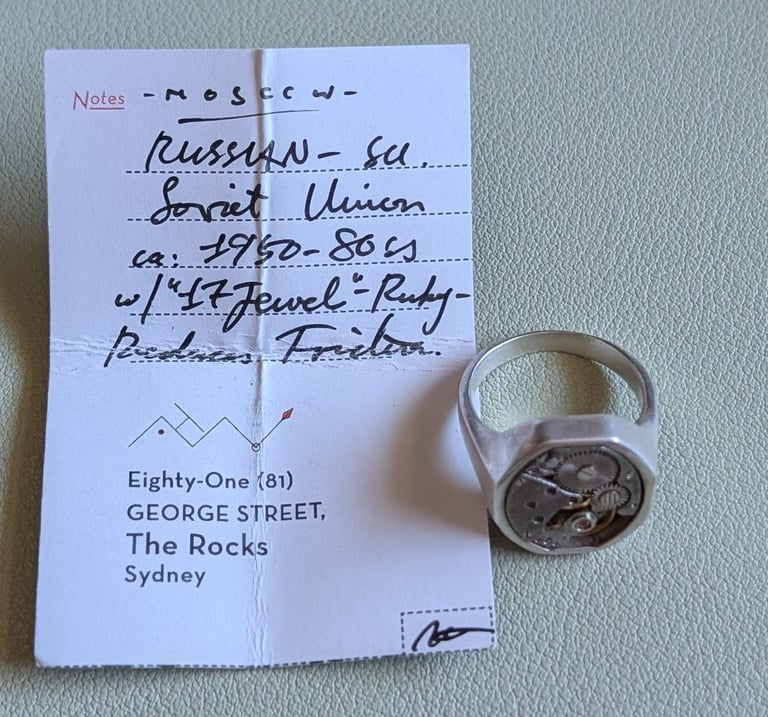 Notes - MOSCCW -
RUSSIAN - SU.
Soviet Union
ca: 1950-80cs
w/ "17 Jewel" - Ruby -
Reduces Friction.
Eighty-One (81)
GEORGE STREET,
The Rocks
Sydney